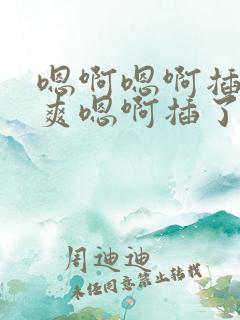 嗯啊嗯啊插
爽嗯啊插了
周迪迪
未经同意禁止转载